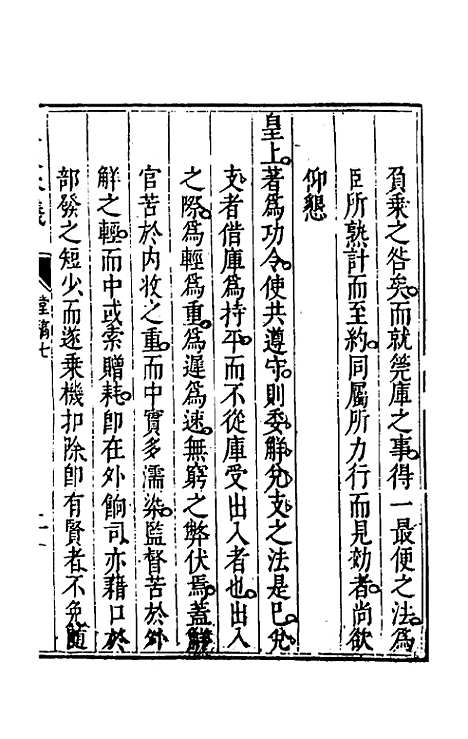 負乗之咎矣而就筦庫之事得一最便之法爲
臣所熟計而至約同屬所力行而見効者尚欲
仰懇
皇上著爲功令使共遵守則委觧兊支之法是巳兊
支者借庫爲持平而不從庫受出入者也出入
之際爲輕爲重爲遲爲速無窮之弊伏焉蓋觧
官苦於内收之重而中實多濡染監督苦於外
觧之輕而中或索贈耗卽在外餉司亦藉口於
部發之短少而遂乗機扣除卽有賢者不免隨
堂稿七